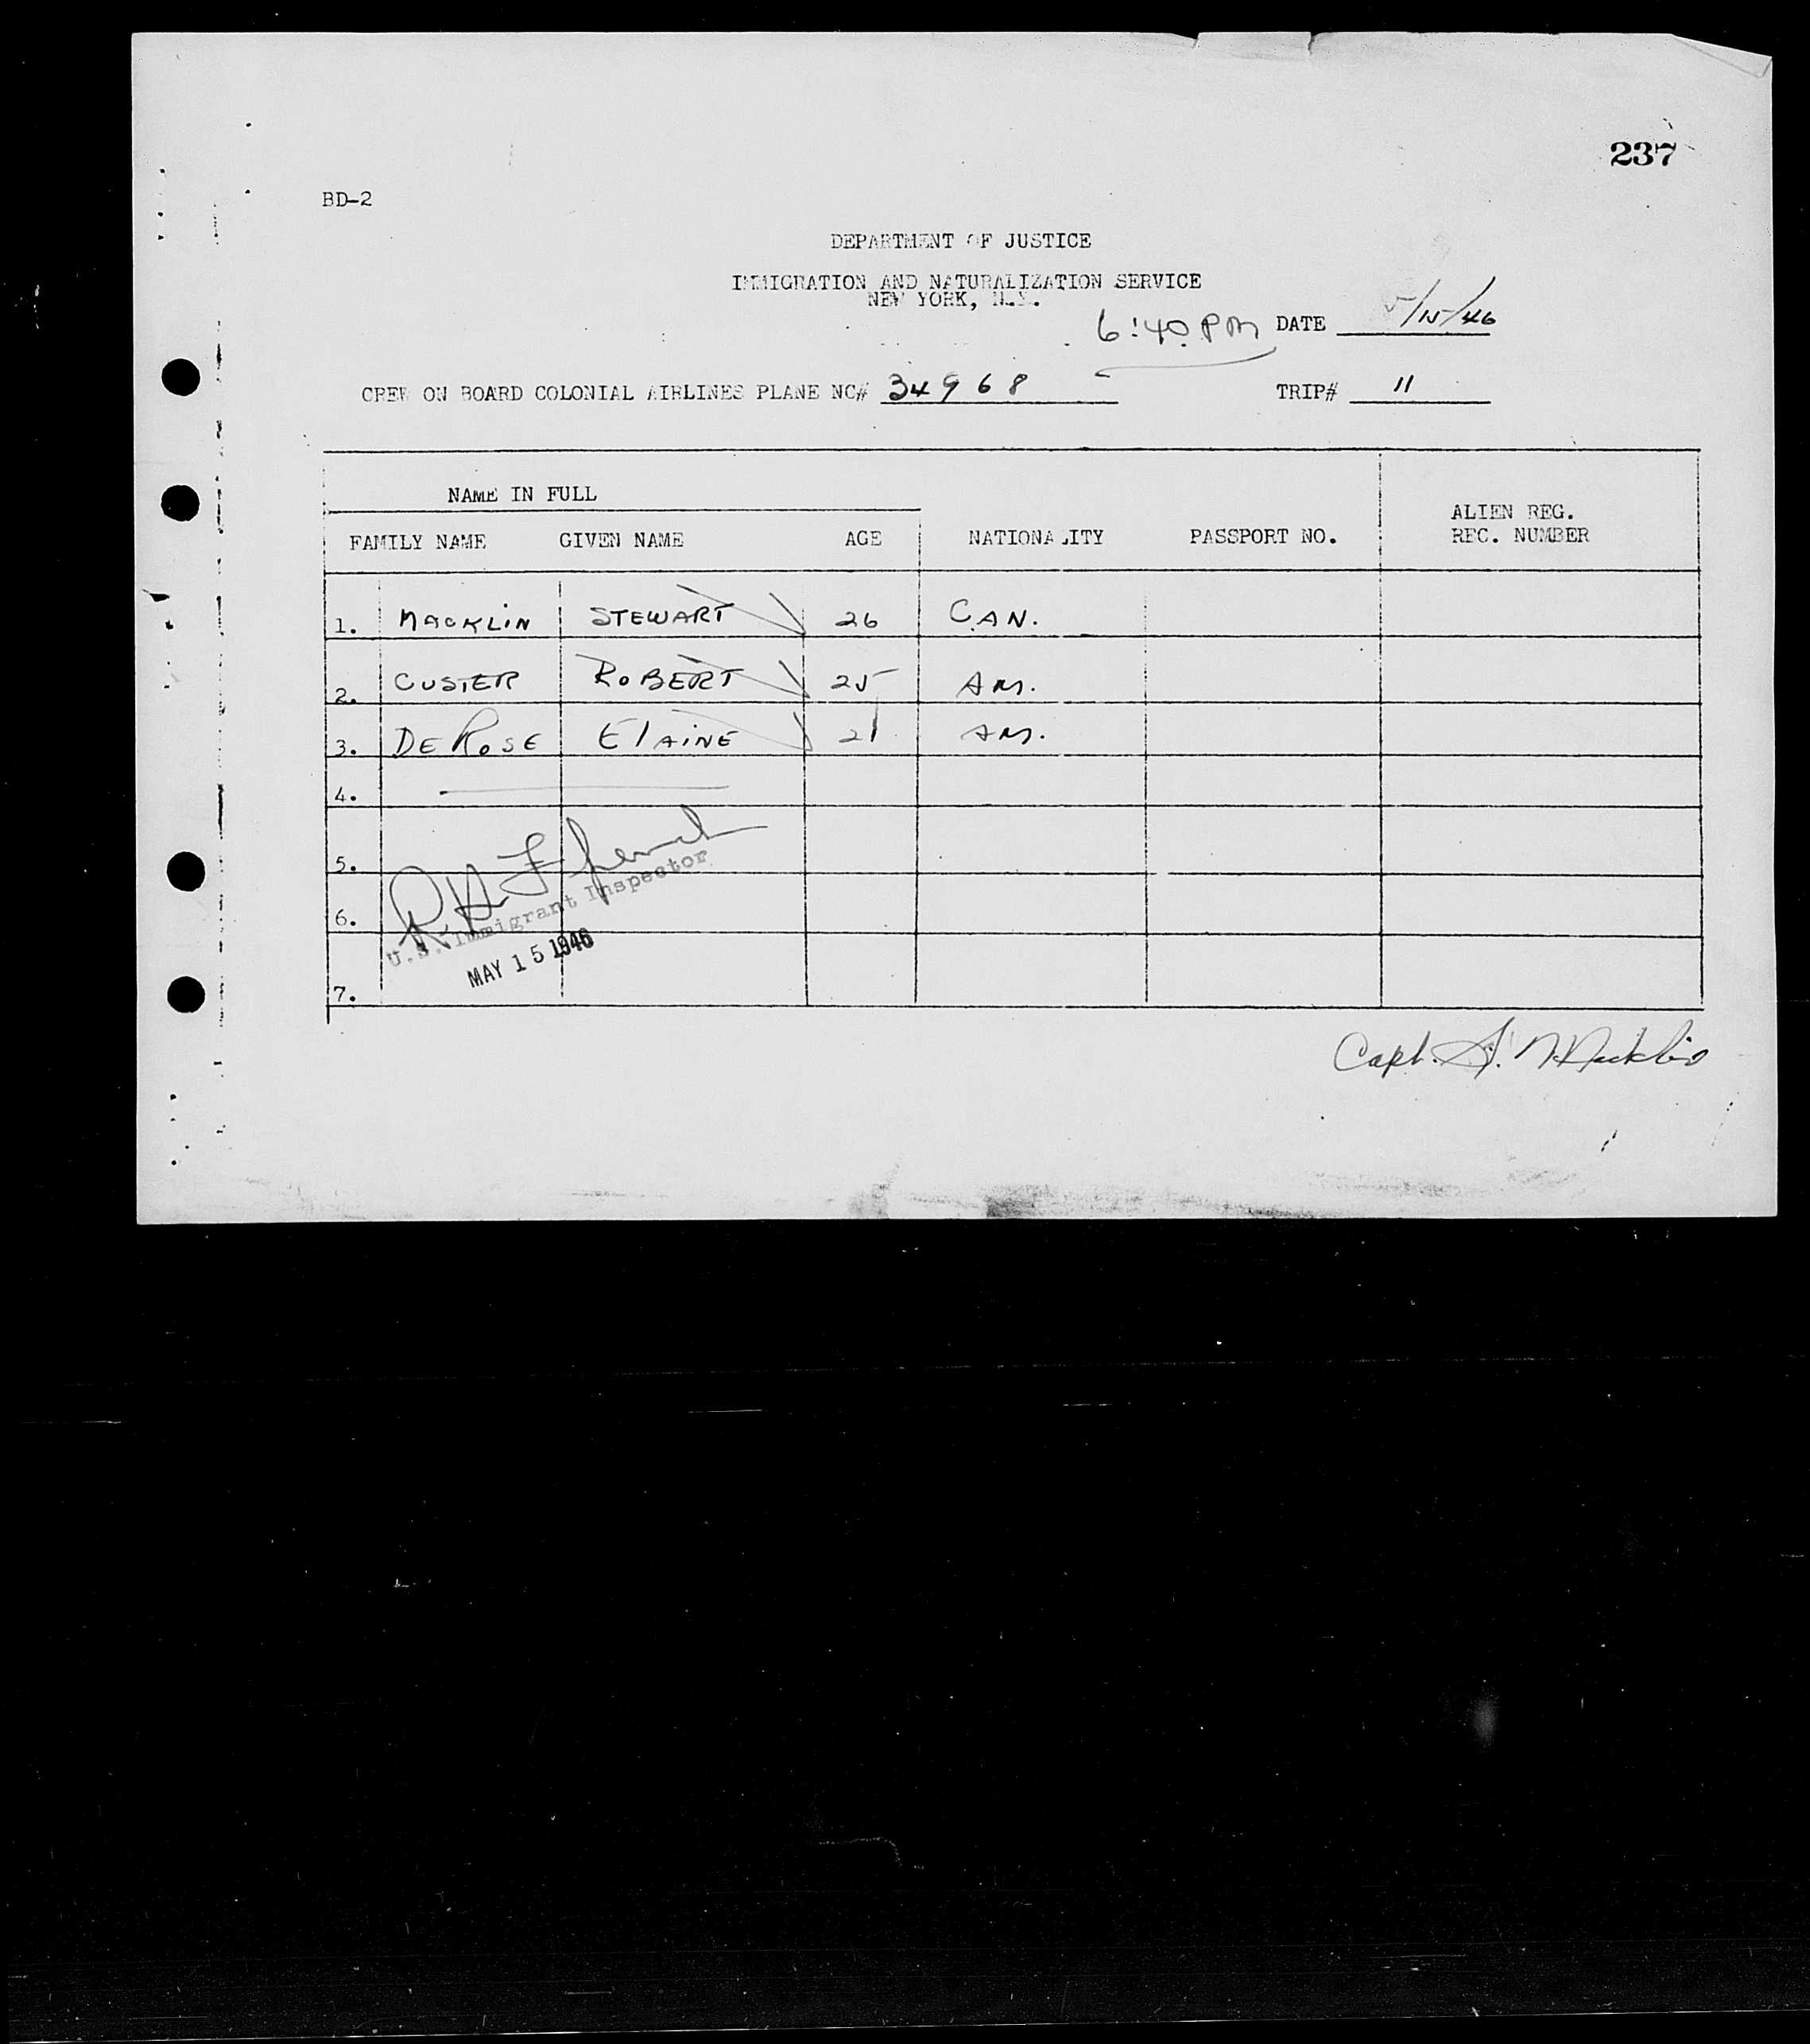 237
BD-2
DEPARTMENT OF JUSTICE
IMMIGRATION AND NATURALIZATION SERVICE
NEW YORK, N.Y.
6:40 PM DATE 5/15/46
CREW ON BOARD COLONIAL AIRLINES PLANE NC# 34968 TRIP# 11
NAME IN FULL
FAMILY NAME GIVEN NAME AGE NATIONALITY PASSPORT NO. ALIEN REG. REC. NUMBER
1. MACKLIN STEWART 26 CAN.
2. CUSTER ROBERT 25 AM.
3. DE ROSE ElAiNE 21 AM.
4.
5.
6.
7.
R. H. F
U.S. Immigrant Inspector
MAY 15 1946
Capt. S. Macklin